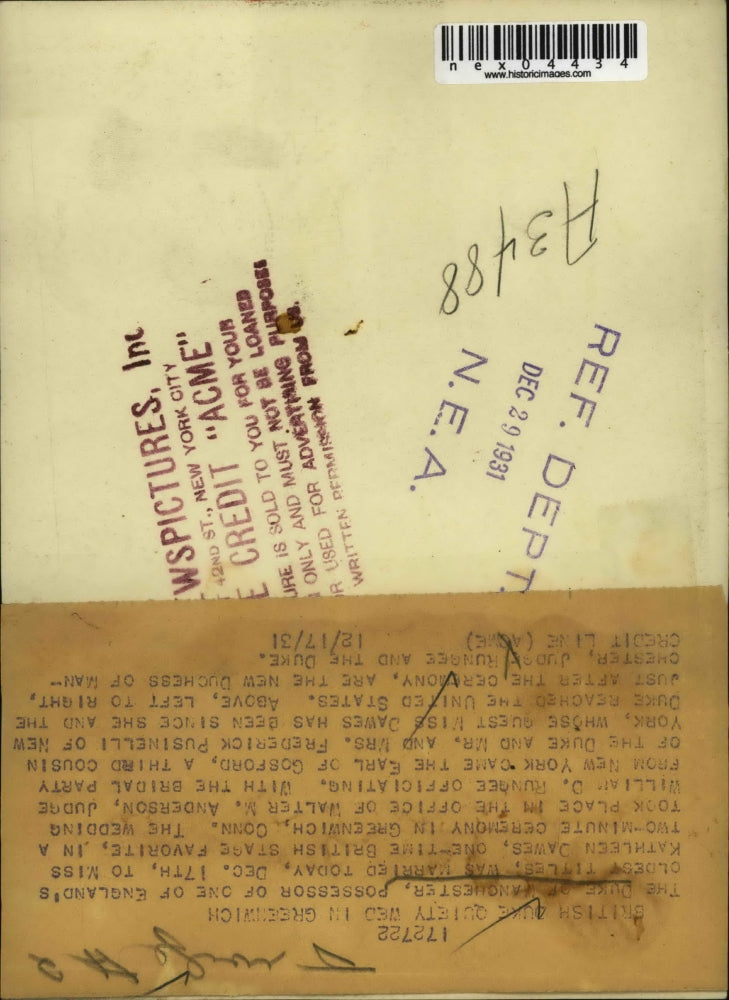 nex04434
www.historicimages.com
A3488
REF. DEPT.
DEC 29 1931
N.E.A.
WSPICTURES, Inc
42ND ST., NEW YORK CITY
E CREDIT "ACME"
URE IS SOLD TO YOU FOR YOUR
ONLY AND MUST NOT BE LOANED
R USED FOR ADVERTISING PURPOSES
WRITTEN PERMISSION FROM US.
172722
BRITISH DUKE QUIETY WED IN GREENWICH
THE DUKE OF MANCHESTER, POSSESSOR OF ONE OF ENGLAND'S
OLDEST TITLES, WAS MARRIED TODAY, DEC. 17TH, TO MISS
KATHLEEN DAWES, ONE-TIME BRITISH STAGE FAVORITE, IN A
TWO-MINUTE CEREMONY IN GREENWICH, CONN. THE WEDDING
TOOK PLACE IN THE OFFICE OF WALTER M. ANDERSON, JUDGE
WILLIAM D. RUNGEE OFFICIATING. WITH THE BRIDAL PARTY
FROM NEW YORK CAME THE EARL OF GOSFORD, A THIRD COUSIN
OF THE DUKE AND MR. AND MRS. FREDERICK PUSINELLI OF NEW
YORK, WHOSE GUEST MISS DAWES HAS BEEN SINCE SHE AND THE
DUKE REACHED THE UNITED STATES. ABOVE, LEFT TO RIGHT,
JUST AFTER THE CEREMONY, ARE THE NEW DUCHESS OF MAN-
CHESTER, JUDGE RUNGEE AND THE DUKE.
CREDIT LINE (ACME) 12/17/31